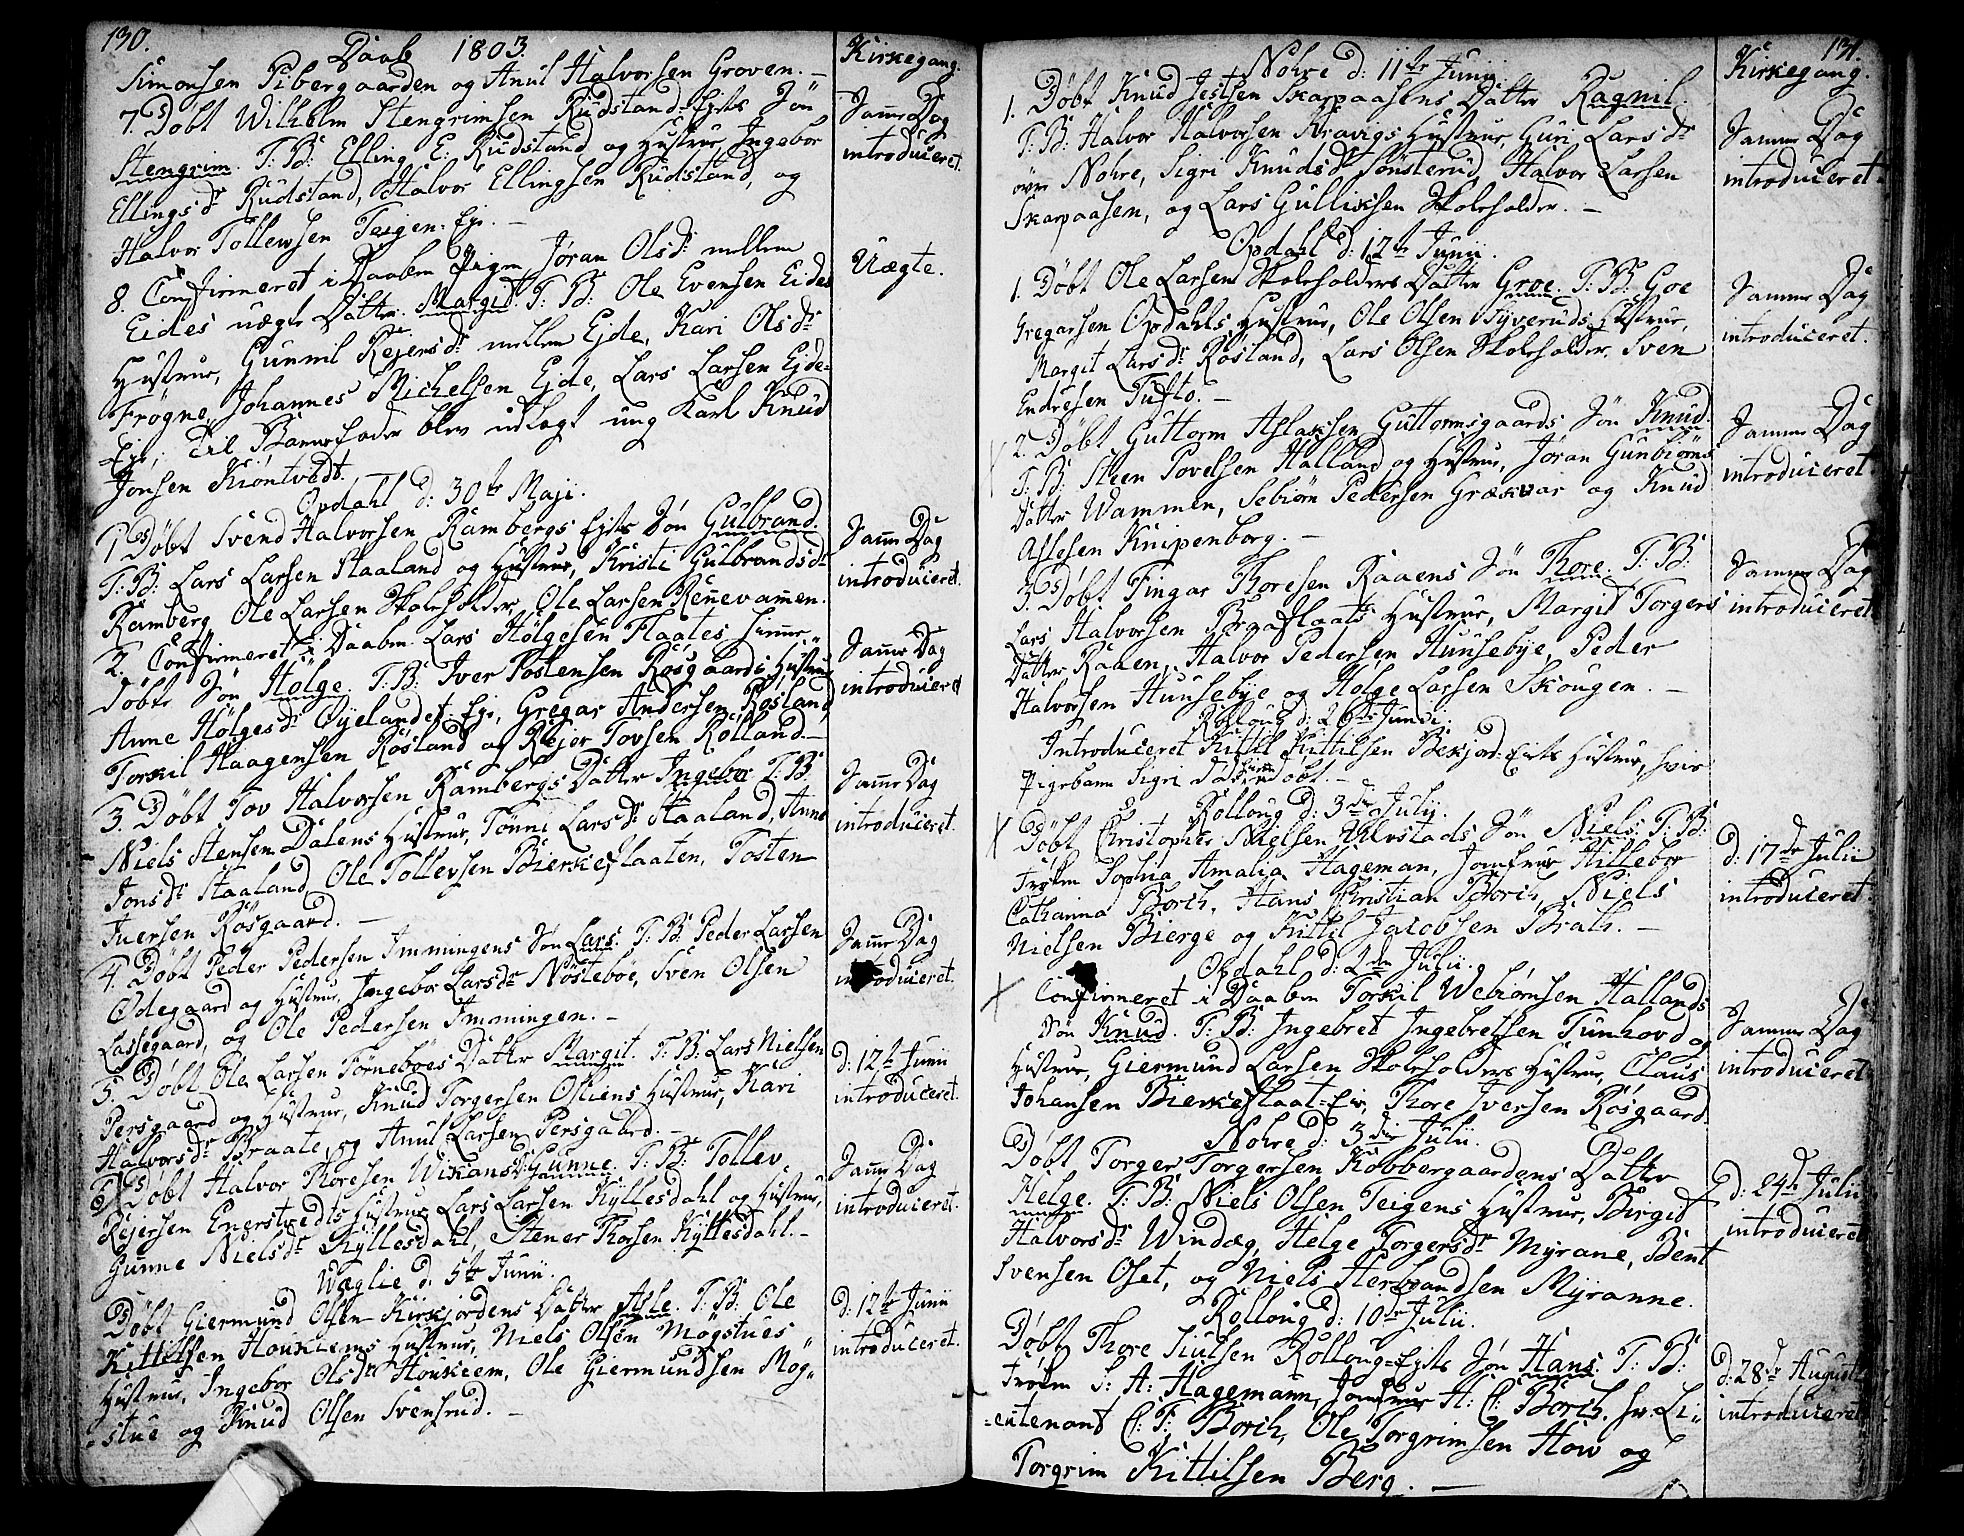 130.
Daab 1803.
Kirkegang.
Simonsen Pibergaarden og Anul Halvorsen Groven. –
7. Døbt Wilhelm Stengrimsen Rudstand-Eyets Søn
Stengrim. T: B: Elling E: Rudstand og Hustrue, Ingebor
Ellingsdr Rudstand, Halvor Ellingsen Rudstand, og
Halvor Tollewsen Teigen-Eje. –
Samme Dag
introduceret.
8. Confirmeret i Daaben Pigen Jøran Olsdr mellem
Eides uægte Datter Margid. T: B: Ole Evensen Eides
Hustrue, Gunnil Rejersdr mellem Ejde, Kari Olsdr
Frøgne, Johannes Michelsen Ejde, Lars Larsen Ejde-
-Eje; Til Barnefader blev udlagt ung Karl Knud
Jonsen Kiøntvedt.
Uægte.
Opdahl d: 30te Maji.
1 Døbt Svend Halvorsen Rambergs Ejets Søn Gulbrand.
T: B: Lars Larsen Staaland og Hustrue, Kristi Gulbrandsdr
Ramberg, Ole Larsen Skoleholder, Ole Larsen Rennevammen.
Samme Dag
introduceret.
2. Confirmeret i Daaben Lars Hølgesen Flaates hiemme
døbte Søn Hølge. T: B: Iver Tostensen Rosgaards Hustrue
Anne Hølgesdr Øyelandet-Eje, Gregar Andersen Røsland,
Torkil Haagensen Røsland og Rejer Tovsen Rolland. –
Samme Dag
introduceret
3. Døbt Tov Halvorsen Rambergs Datter Ingebor T: B:
Niels Stensen Dalens Hustrue, Tønni Larsdr Staaland, Anne
Jonsdr Staaland, Ole Tollevsen Bierkeflaaten, Tosten
Iversen Rosgaard. –
Samme Dag
introduceret.
4. Døbt Peder Pedersen Immingens Søn Lars. T: B: Peder Larsen
Ødegaard og Hustrue, Ingebor Larsdr Nøsteboe, Sven Olsen
Lassegaard, og Ole Pedersen Immingen. –
Samme Dag
introduceret.
5. Døbt Ole Larsen Tørneboes Datter Margit. T: B: Lars Nielsen
Persgaard og Hustrue, Knud Torgersen Øsliens Hustrue, Kari
Halvorsdr Braate, og Anul Larsen Persgaard. –
d: 12te Junii
introduceret.
6 Døbt Halvor Thoresen Wikans D: Gunne. T: B: Tollev
Rejersen Enerstvedts Hustrue, Lars Larsen Kyllesdahl og Hustrue,
Gunne Nielsdr Kyllesdahl, Stener Thorsen Kyllesdahl. –
Samme Dag
introduceret.
Wæglie d: 5te Junii.
Døbt Giermund Olsen Kirkjordens Datter Asle. T: B: Ole
Kittilsen Houkiems Hustrue, Niels Olsen Møgstues
Hustrue, Ingebor Olsdr Houkeem, Ole Giermundsen Møg„
-stue og Knud Olsen Svensrud. –
d: 12te Junii
introduceret.
131.
Kirkegang.
Nohre d: 11te Junii.
1. Døbt Knud Jestsen Skarpaasens Datter Ragnil.
T: B: Halvor Halvorsen Kravigs Hustrue, Guri Larsdr
øvre Nohre, Sigri Knudsdr Sønsterud, Halvor Larsen
Skarpaasen, og Lars Gulliksen Skoleholder. –
Samme Dag
introduceret.
Opdahl d: 12te Junii.
1. Døbt Ole Larsen Skoleholders Datter Groe. T: B: Goe
Gregarsen Opdahls Hustrue, Ole Olsen Syveruds Hustrue,
Margit Larsdr Røsland, Lars Olsen Skoleholder, Sven
Endresen Tufto. –
Samme Dag
introduceret.
2. Døbt Guttorm Aslaksen Guttormsgaards Søn Knud.
T: B: Steen Povelsen Halland og Hustrue, Jøran Gunbiørns
Datter Wammen, Sebiørn Pedersen Grækvar og Knud
Aslesen Knipenborg. –
Samme Dag
introduceret
3. Døbt Fingar Thoresen Raaens Søn Thore. T: B:
Lars Halvorsen Braaflaats Hustrue, Margid Torgers
Datter Raaen, Halvor Pedersen Hunsebye, Peder
Halvorsen Hunsebye og Hølge Larsen Skougen. –
Samme Dag
introduceret
Rolloug d: 26de Junii.
Introduceret Kittil Kittilsen Bekjord-Eiets Hustrue, hvis
Pigebarn Sigri døde hiemdøbt. –
Rolloug d: 3die Julii.
Døbt Christopher Nielsen Ulvstads Søn Niels. T: B:
Frøken Sophia Amalia Hageman, Jomfrue Hillebor
Catharina Borch, Hans Christian Borch, Niels
Nielsen Bierge og Kittil Jacobsen Brath. –
d: 17de Julii
introduceret.
Opdahl d: 2den Julii.
Confirmeret i Daaben Torkil Webiørnsen Hallands
Søn Knud. T: B: Ingebret Ingebretsen Tunhovd og
Hustrue, Giermund Larsen Skoleholders Hustrue, Claus
Johansen Bierkeflaat-Eie, Thore Iversen Rosgaard.
Samme Dag
introduceret
Nohre d: 3die Julii.
Døbt Torger Torgersen Kobbergaardens Datter
Helge. T: B: Niels Olsen Teigens Hustrue, Birgid
Halvorsdr Windæg, Helge Torgersdr Myrane, Bent
Svensen Øset, og Niels Herbrandsen Myranne.
D: 24de Julii
introduceret
Rolloug d: 10de Julii.
Døbt Thore Siulsen Rolloug-Eyets Søn Hans. T: B:
Frøken S: A: Hagemann, Jomfrue H: C: Borch, Hr: Li„
-eutenant C: T: Borch, Ole Torgrimsen How og
Torgrim Kittilsen Berg. –
d: 28de August
introduceret